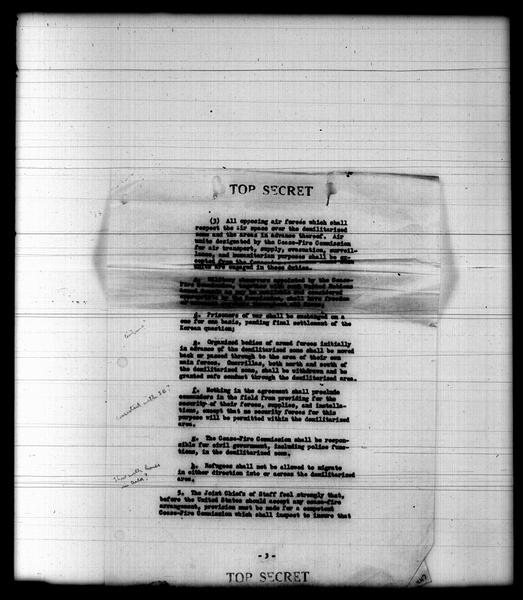 TOP SECRET
(3) All opposing air forces which shall
respect the air space over the demilitarized
zone and the areas in advance thereof. Air
units designated by the Cease-Fire Commission
for air transport, supply, evacuation, surveil-
lance, and humanitarian purposes shall be ex-
cepted from the
units are engaged in these duties.
observers appointed by the Cease-
Fire Commission, together with such United Nations
shall have freedom
d. Prisoners of war shall be exchanged on a
one for one basis, pending final settlement of the
Korean question;
e. Organized bodies of armed forces initially
in advance of the demilitarized zone shall be moved
back or passed through to the area of their own
main forces. Guerrillas, both north and south of
the demilitarized zone, shall be withdrawn and be
granted safe conduct through the demilitarized area.
f. Nothing in the agreement shall preclude
commanders in the field from providing for the
security of their forces, supplies, and installa-
tions, except that no security forces for this
purpose will be permitted within the demilitarized
area.
consistent with 3 e?
g. The Cease-Fire Commission shall be respon-
sible for civil government, including police func-
tions, in the demilitarized zone.
h. Refugees shall not be allowed to migrate
in either direction into or across the demilitarized
area.
5. The Joint Chiefs of Staff feel strongly that,
before the United States should accept any cease-fire
arrangement, provision must be made for a competent
Cease-Fire Commission which shall inspect to insure that
- 3 -
TOP SECRET